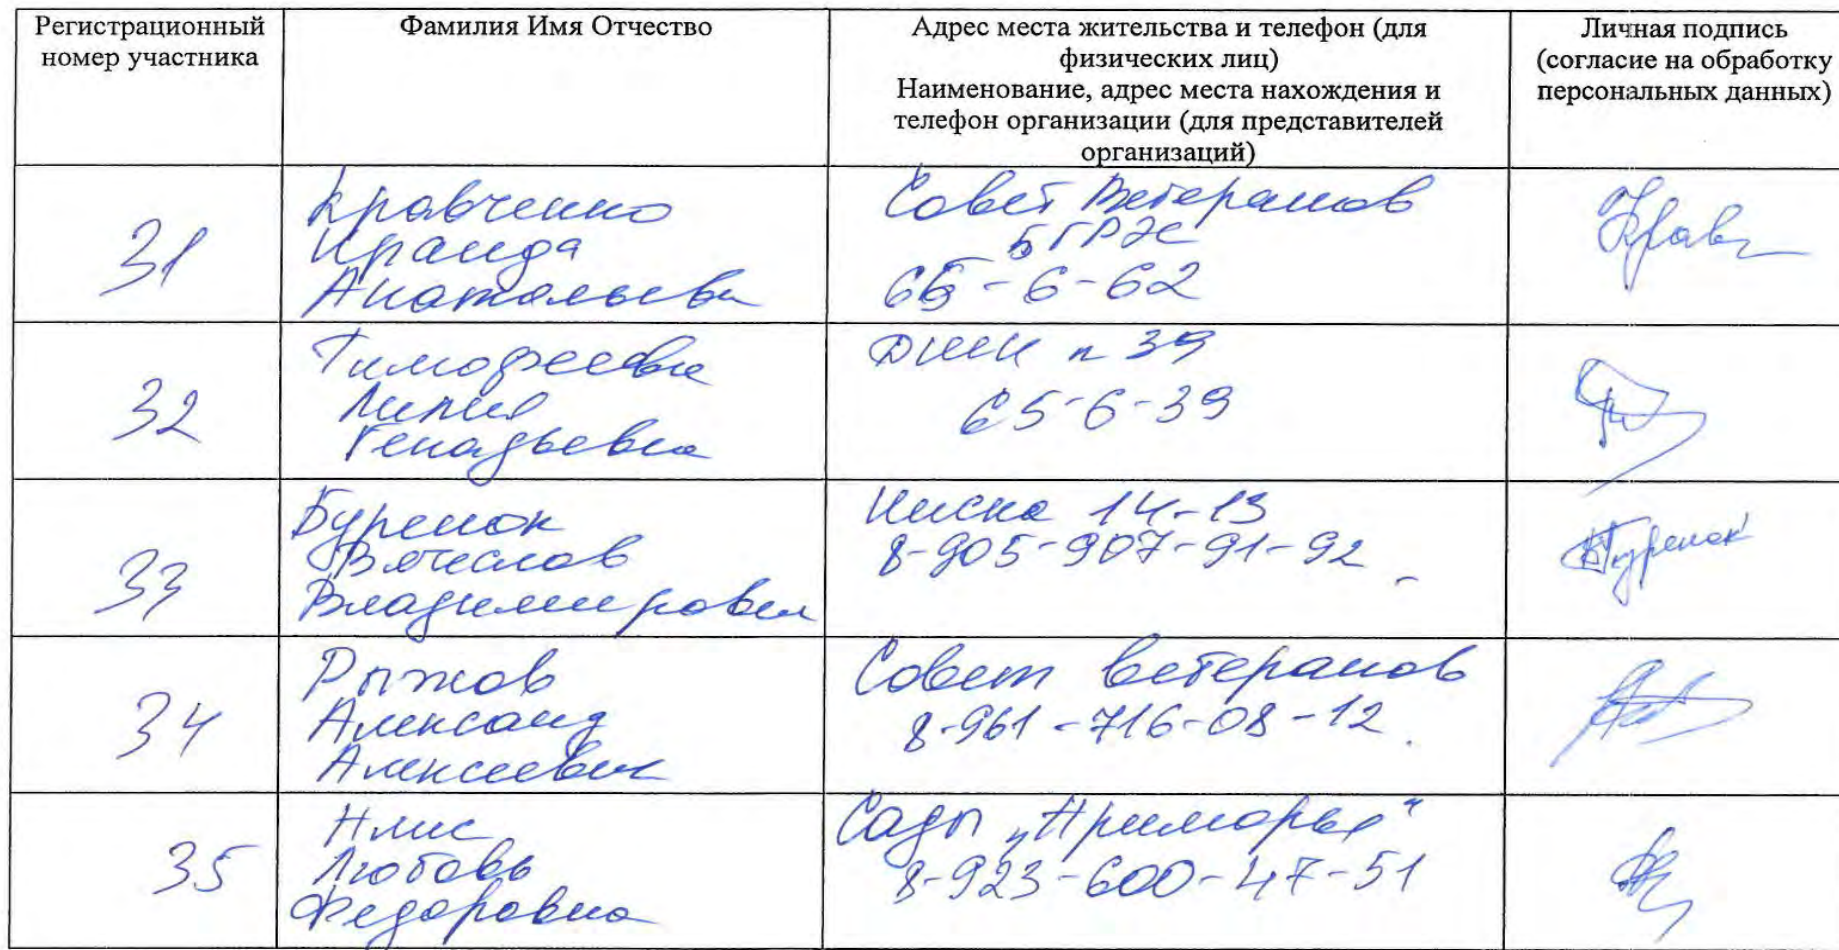 Регистрационный
номер участника
Фамилия Имя Отчество
Адрес места жительства и телефон (для
физических лиц)
Наименование, адрес места нахождения и
телефон организации (для представителей
организаций)
Личная подпись
(согласие на обработку
персональных данных)
31
Кравченко
Ираида
Анатольевн
Совет Ветеранов
БГРЭС
65-6-62
Крав
32
Тимофеевна
Лилия
Генадьевна
39
65-6-39
33
Буренок
Вячеслав
Владимирович
14-13
8-905-907-91-92
Буренок
34
Рыжов
Александ
Алексеевич
Совет ветеранов
8-961-716-08-12
35
Любовь
Федоровна
Сады „Приморье"
8-923-600-47-51